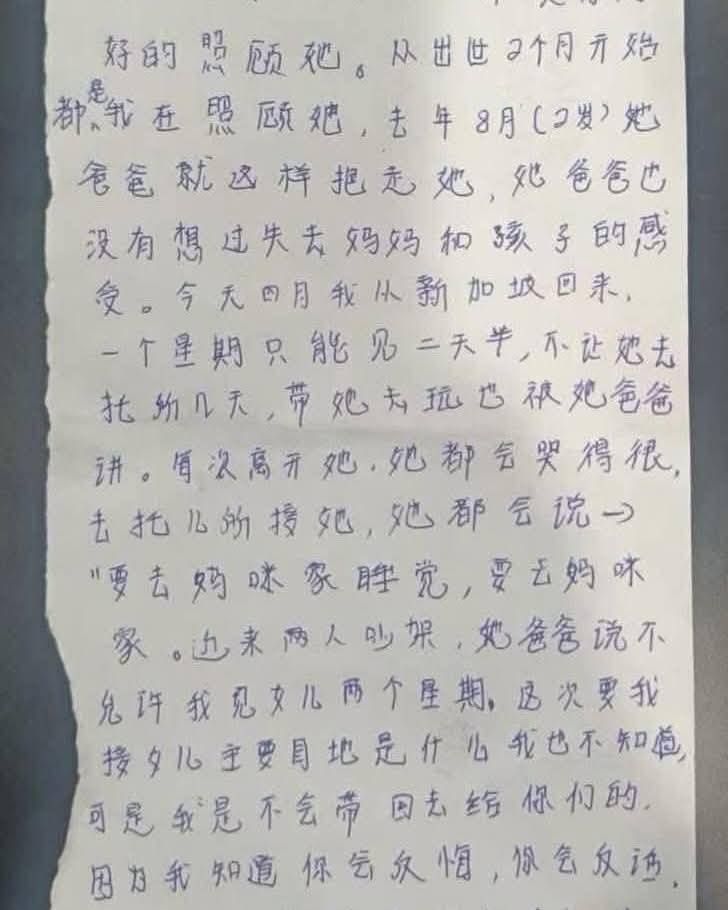 好的照顾她。从出世2个月开始
都是我在照顾她,去年8月(2岁)她
爸爸就这样抱走她,她爸爸也
没有想过失去妈妈和孩子的感
受。今天四月我从新加坡回来,
一个星期只能见二天半,不让她去
托所几天,带她去玩也被她爸爸
讲。每次离开她,她都会哭得很,
去托儿所接她,她都会说→
"要去妈咪家睡觉,要去妈咪
家。近来两人吵架,她爸爸说不
允许我见女儿两个星期。这次要我
接女儿主要目地是什么我也不知道,
可是我是不会带回去给你们的.
因为我知道你会反悔,你会反话,